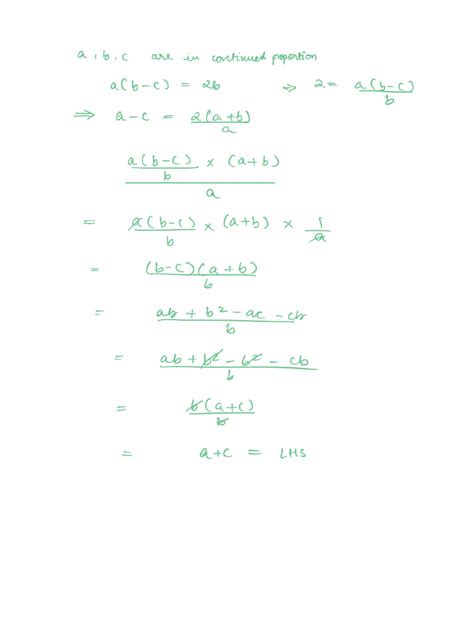 a, b, c are in continued proportion
a(b-c) = 2b ⇒ 2 = a(b-c)/b
⇒ a-c = 2(a+b)/a
a(b-c)/b × (a+b) / a
= a(b-c)/b × (a+b) × 1/a
= (b-c)(a+b)/b
= ab + b² - ac - cb/b
= ab + b² - b² - cb/b
= b(a+c)/b
= a+c = LHS